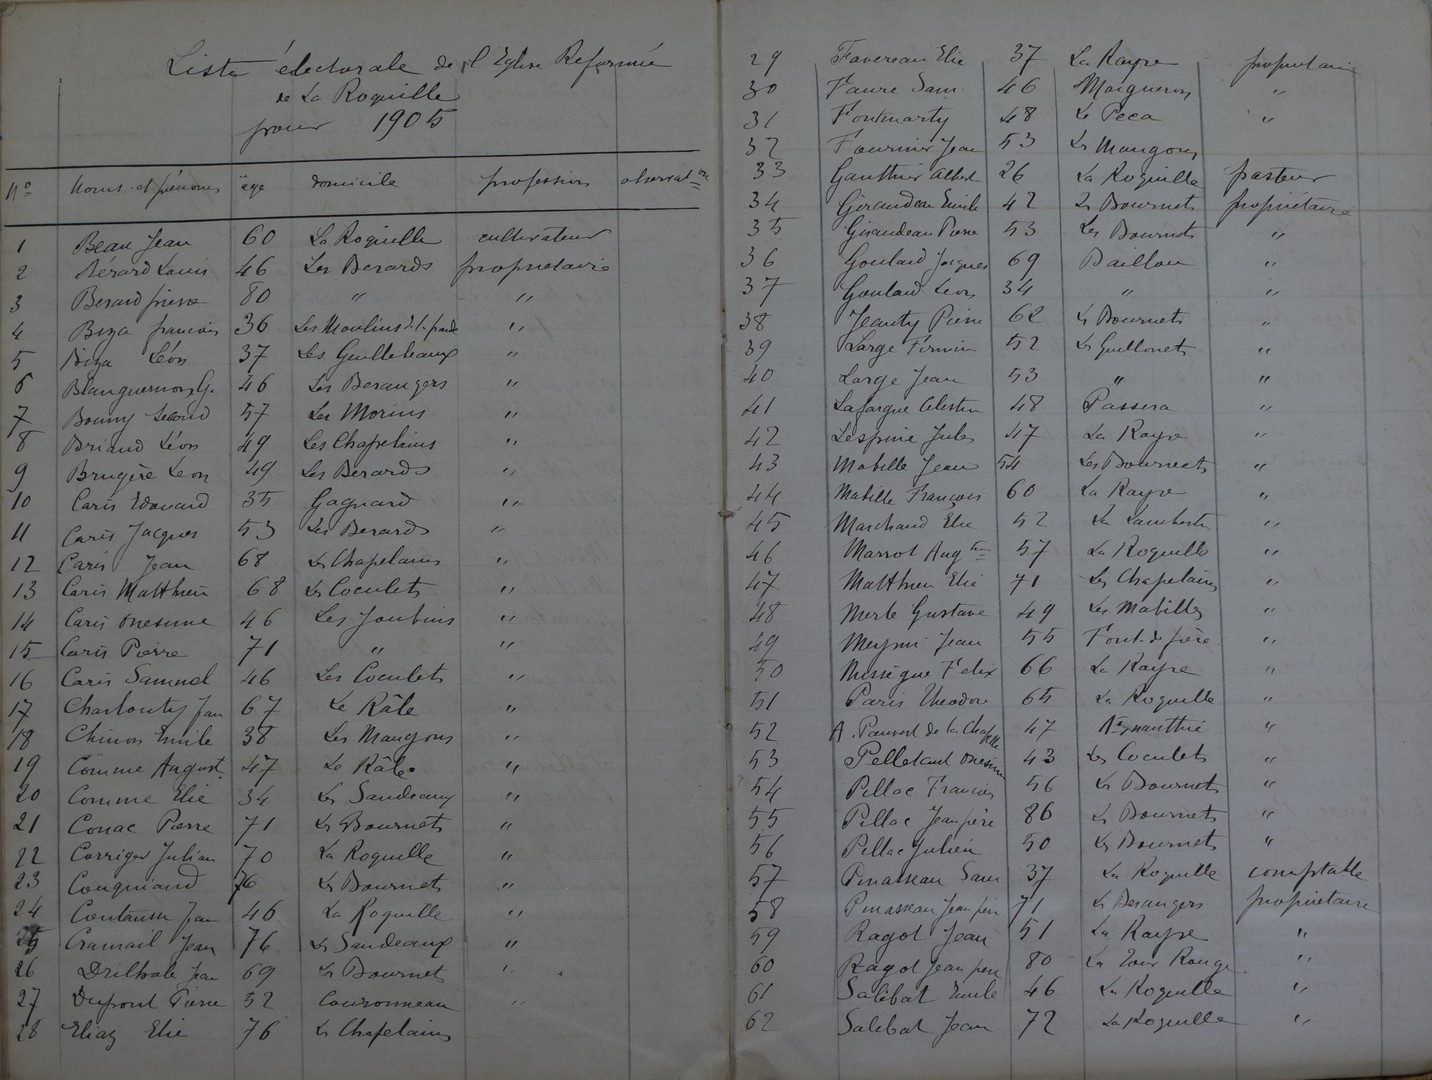 Liste électorale de l'Eglise Reformée
de La Roquille
pour 1905
No noms et prénoms age domicile profession observation
1 Beau Jean 60 La Roquille cultivateur
2 Bérard Louis 46 Les Berards propriétaire
3 Berard pierre 80 " "
4 Biza francois 36 Les Moulins "
5 Biza Léon 37 Les Guilleteaux "
6 Blanguernon G. 46 Les Berangers "
7 Bonny Second 57 Les Morins "
8 Briand Léon 49 Les Chapelains "
9 Brugère Leon 49 Les Berards "
10 Caris Edouard 35 Gagnard "
11 Caris Jacques 53 Les Berards "
12 Caris Jean 68 Les Chapelains "
13 Caris Matthieu 68 Les Coculets "
14 Caris onesime 46 Les Joubins "
15 Caris Pierre 71 " "
16 Caris Samuel 46 Les Coculets "
17 Charlouty Jean 67 Le Râle "
18 Chinon Emile 38 Les Maugons "
19 Comme August. 47 Le Râle "
20 Comme Elie 34 Les Sandeaux "
21 Conac Pierre 71 Les Bournets "
22 Corriger Julian 70 La Roquille "
23 Cougniaud 76 Les Bournets "
24 Coutausse Jean 46 La Roquille "
25 Cramail Jean 76 Les Sandeaux "
26 Drilhole Jean 69 Les Bournet "
27 Dupont Pierre 52 Couronneau "
28 Eliaz Elie 76 Les Chapelains
29 Favereau Elie 37 La Rayre propriétaire
30 Faure Sam. 46 Maigueron "
31 Fontmarty 48 Le Peca "
32 Fournier Jean 53 Les Maugons
33 Gauthier Albert 26 La Roquille pasteur
34 Giraudeau Emile 42 Les Bournets propriétaire
35 Giraudeau Pierre 53 Les Bournets "
36 Goulard Jacques 69 Baillou "
37 Goulard Leon 34 " "
38 Jeanty Pierre 62 Les Bournets "
39 Large Firmin 52 Les Guillonets "
40 Large Jean 53 " "
41 Lafargue Celestin 48 Passera "
42 Lespine Jules 47 La Rayre "
43 Mabille Jean 54 Les Bournets "
44 Mabille François 60 La Rayre "
45 Marchand Elie 52 "
46 Marrot Aug tin 57 La Roquille "
47 Matthieu Elie 71 Les Chapelains "
48 Merle Gustave 49 Les Mabilles "
49 Meymi Jean 55 "
50 Missègue Felix 66 La Rayre "
51 Paris Theodore 65 La Roquille "
52 A. de la Chapelle 47 "
53 Pelletant onesime 43 Les Coculets "
54 Pillac Francois 56 Les Bournets "
55 Pillac Jean père 86 Les Bournets "
56 Pillac Julien 50 Les Bournets "
57 Pinasseau Sam 37 La Roquille comptable
58 Pinasseau Jean père 71 Les Berangers propriétaire
59 Ragot Jean 51 La Rayre "
60 Ragot Jean père 80 La Tour Rouge "
61 Salebat Emile 46 La Roquille "
62 Salebat Jean 72 La Roquille "